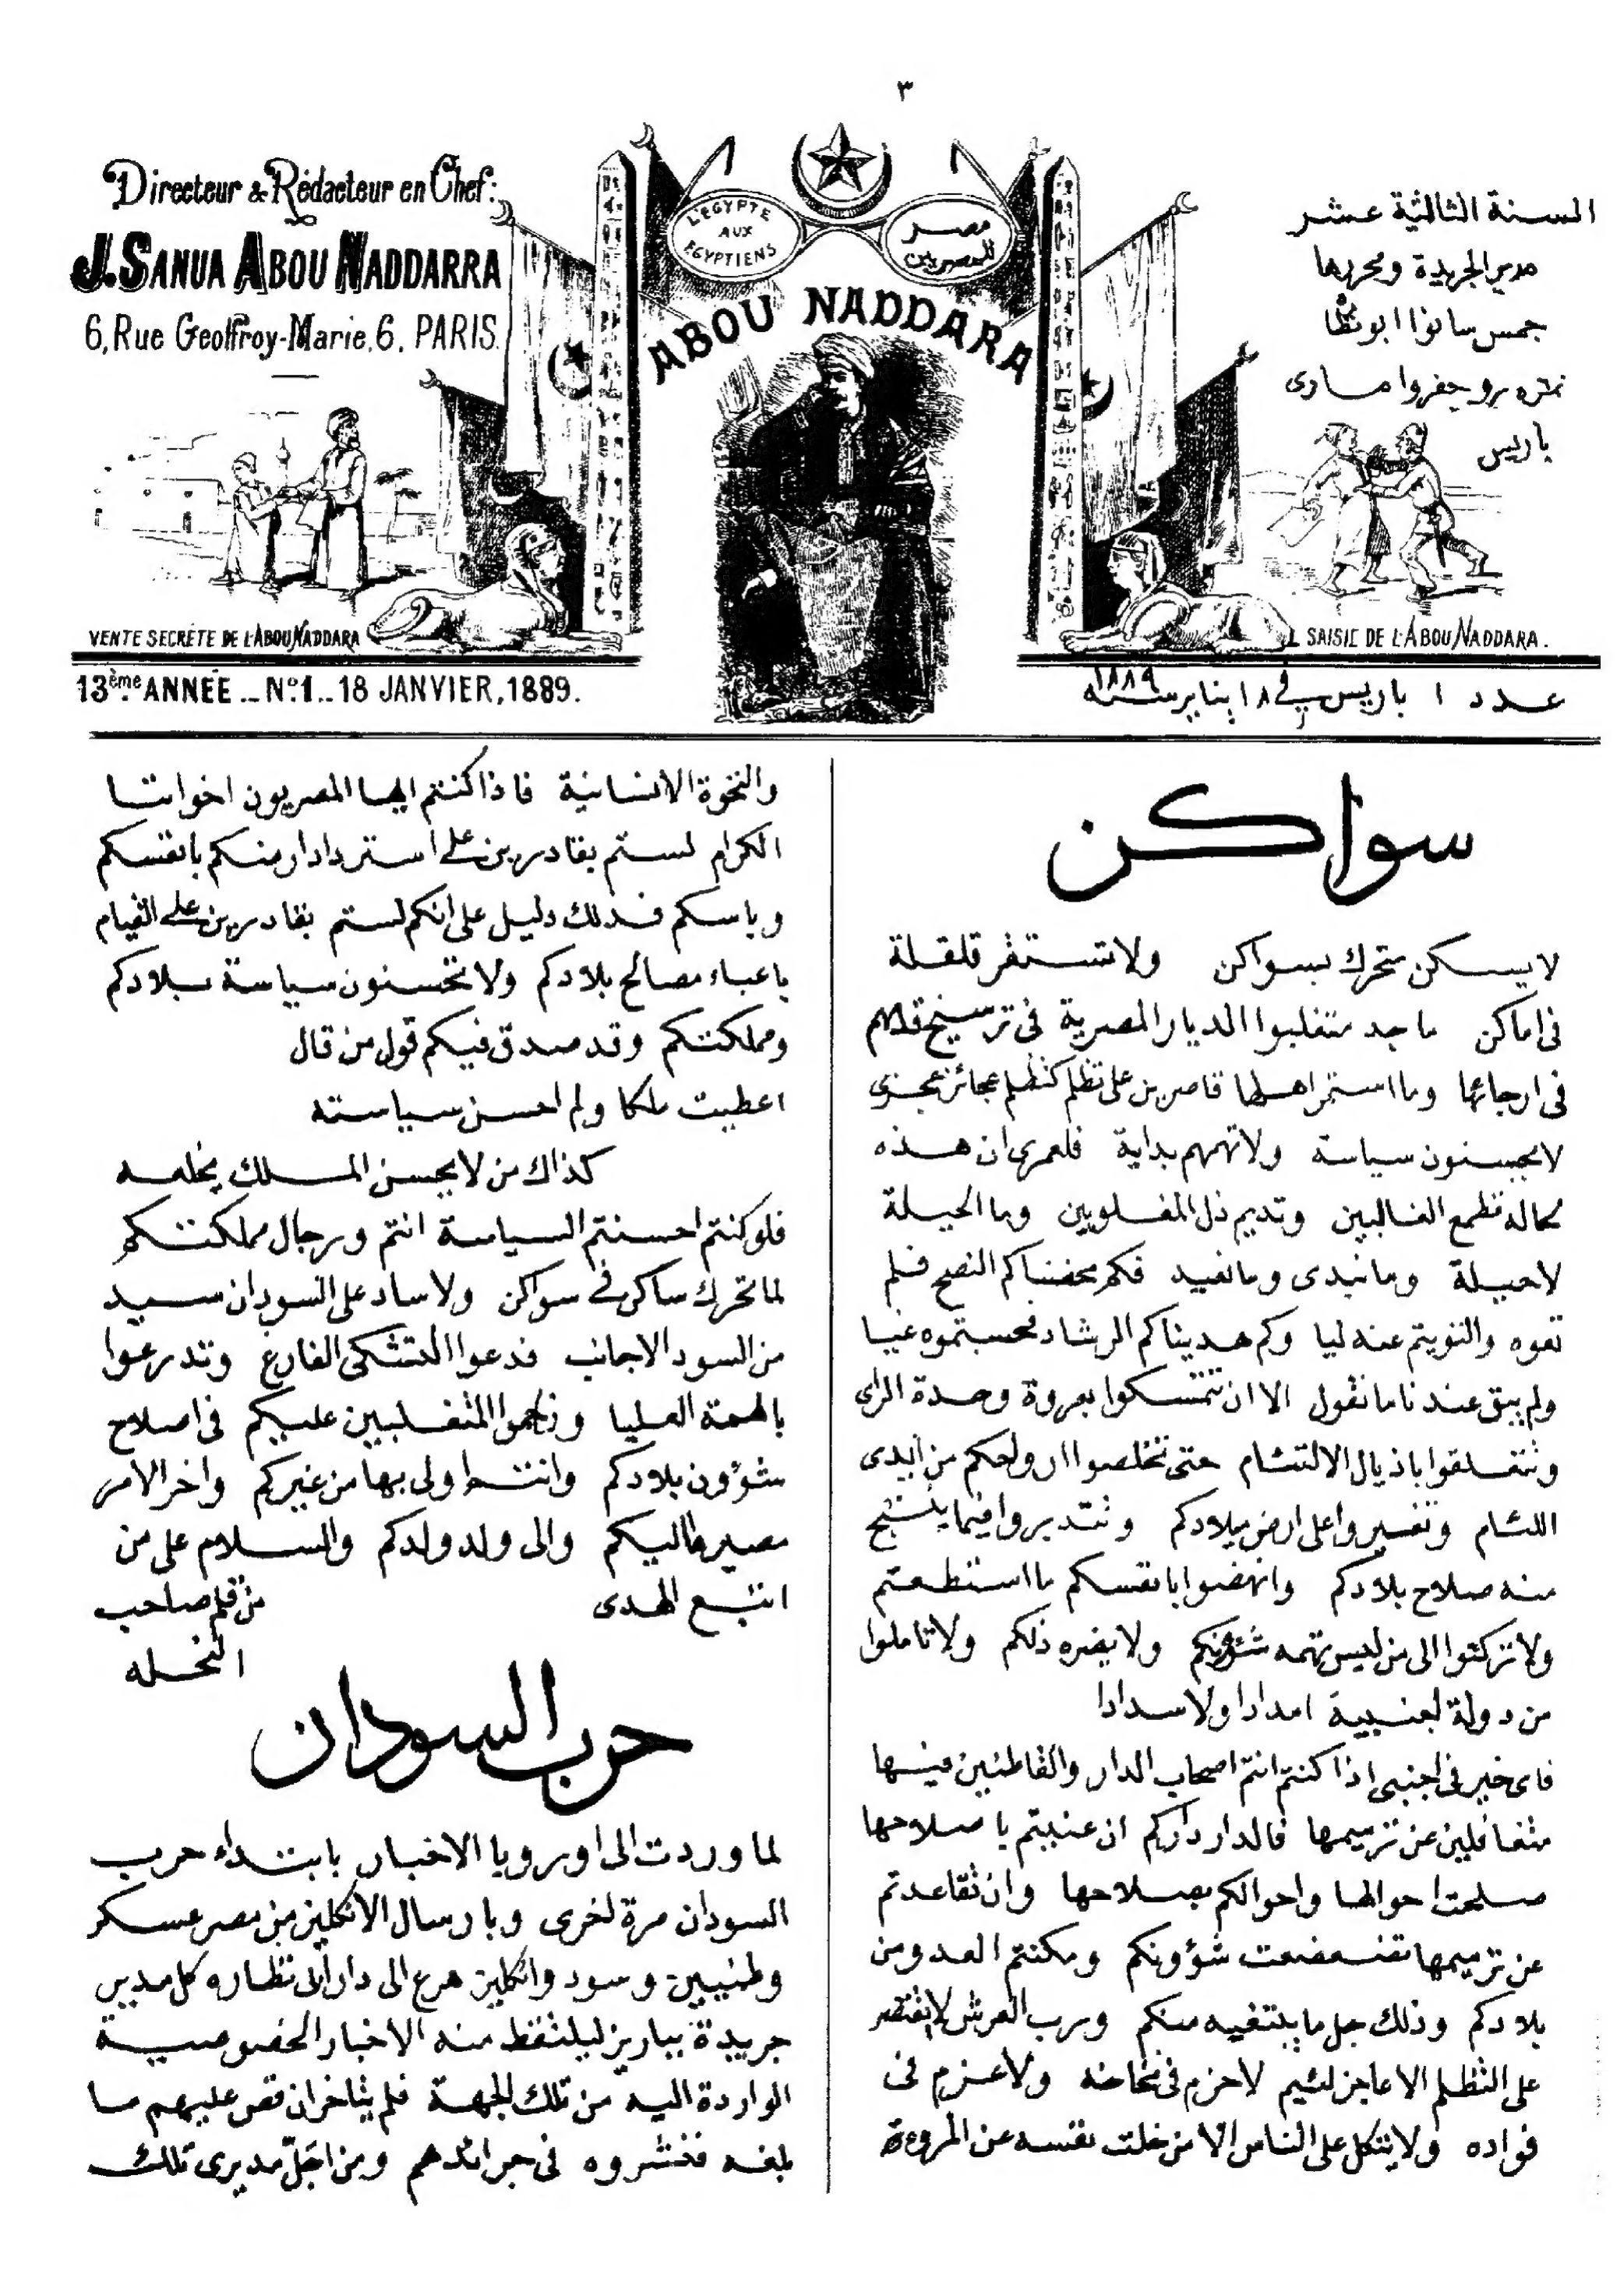 ٣
Directeur & Rédacteur en Chef:
J. SANUA ABOU NADDARRA
6, Rue Geoffroy-Marie, 6, PARIS.
L'EGYPTE
AUX
EGYPTIENS
مصر
للمصريين
ABOU NADDARA
السنة الثالثية عشر
مدير الجريدة ومحررها
جمس سانوا ابو نظارة
نمره ٦ رو جفروا مارى
باريس
VENTE SECRETE DE L'ABOU NADDARA
SAISIE DE L'ABOU NADDARA.
13ème ANNÉE _ No. 1 _ 18 JANVIER, 1889.
عدد ١ باريس في ١٨ يناير سنه ١٨٨٩
سواكن
لا يسكن متحرك بسواكن ولا تستقر قلقلة
فى اماكن ما جد متغلبوا الديار المصرية فى ترسيخ قدمهم
فى ارجائها وما استمر اهلها قاصرين على تظلم كتظلم عجائز عجزى
لا يحسنون سياسة ولا تهمهم بداية فلعمرى ان هذه
لحاله تطمع الغالبين وتديم ذل المغلوبين وما الحيلة
لا حيلة وما نبدى وما نعيد فكم محضناكم النصح فلم
تعوه والتويتم عنه ليا وكم هديناكم الرشاد فحسبتموه غيا
ولم يبق عندنا ما نقول الا ان تتمسكوا بعروة وحدة الراى
وتتعلقوا باذيال الالتئام حتى تخلصوا ارواحكم من أيدى
اللئام وتغيروا على ارض ميلادكم وتتدبروا فيما ينتج
منه صلاح بلادكم وانهضوا بانفسكم ما استطعتم
ولا تركنوا الى من ليس تهمه شؤونكم ولا يضره ذلكم ولا تاملوا
من دولة اجنبية امدادا ولا سدادا
فاى خير فى اجنبى اذا كنتم انتم اصحاب الدار والقاطنين فيها
متغافلين عن ترميمها فالدار داركم ان عنيتم باصلاحها
صلحت احوالها واحوالكم بصلاحها وان تقاعدتم
عن ترميمها تضعضعت شؤونكم ومكنتم العدو من
بلادكم وذلك جل ما يبتغيه منكم ورب العرش لا يقتصر
على التظلم الا عاجز لئيم لا حزم فى نخاعه ولا عزم فى
فواده ولا يتكل على الناس الا من خلت نفسه عن المروءة
والنخوة الانسانية فاذا كنتم ايها المصريون اخواننا
الكرام لستم بقادرين على استرداد ارضكم بانفسكم
وباسكم فذلك دليل على انكم لستم بقادرين على القيام
باعباء مصالح بلادكم ولا تحسنون سياسة بلادكم
ومملكتكم وقد صدق فيكم قول من قال
اعطيت ملكا ولم احسن سياسته
كذاك من لا يحسن الملك يخلعه
فلو كنتم احسنتم السياسة انتم ورجال مملكتكم
لما تحرك ساكن في سواكن ولا ساد على السودان سيد
من السود الاجانب فدعوا التشكى الفارغ وتدرعوا
بالهمة العليا وزاحموا المتغلبين عليكم فى اصلاح
شؤون بلادكم وانتم اولى بها من غيركم واخر الامر
مصيرها اليكم والى ولد ولدكم والسلام على من
اتبع الهدى من قلم صاحب
النحله
حرب السودان
لما وردت الى اوروپا الاخبار بابتداء حرب
السودان مرة اخرى وبارسال الانكليز من مصر عسكر
وطنيين وسود وانكليز هرع الى دار ابى نظاره كل مدير
جريدة بباريز ليلتقط منه الاخبار الخصوصية
الواردة اليه من تلك الجهة فلم يتاخر ان قص عليهم ما
بلغه فنشروه فى جرائدهم ومن اجلّ مديرى تلك